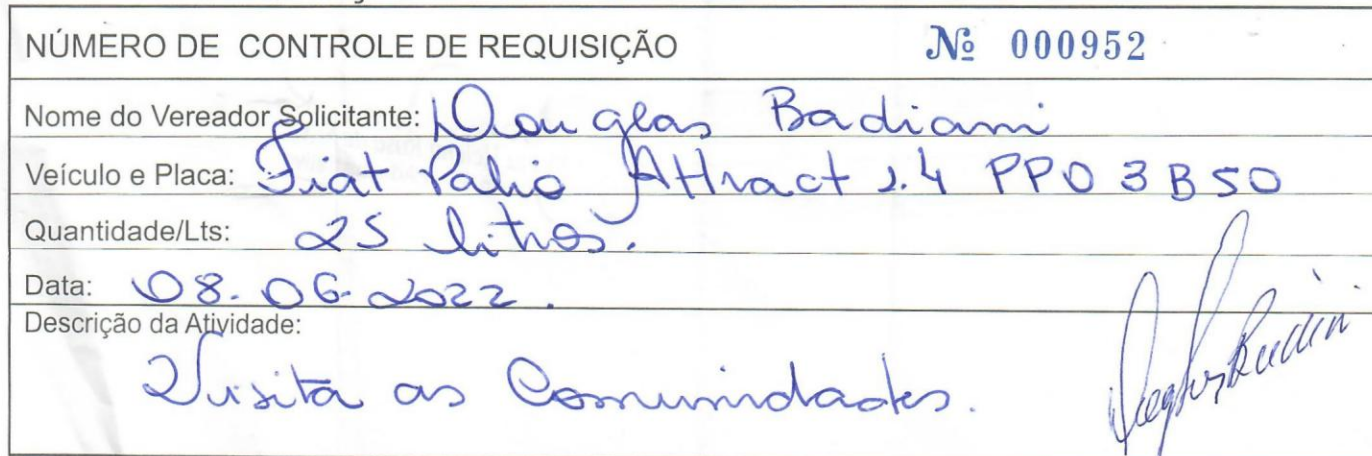 NÚMERO DE CONTROLE DE REQUISIÇÃO Nº 000952
Nome do Vereador Solicitante: Douglas Badiani
Veículo e Placa: Fiat Palio Attract 1.4 PPO 3B50
Quantidade/Lts: 25 litros.
Data: 08.06.2022.
Descrição da Atividade:
Visita as Comunidades.